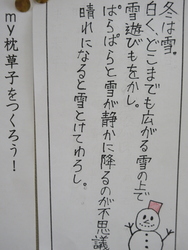 冬は雪。
白く、どこまでも広がる雪の上で
雪遊びもをかし。
ぱらぱらと雪が静かに降るのが不思議
晴れになると雪とけてわろし。
my枕草子をつくろう!